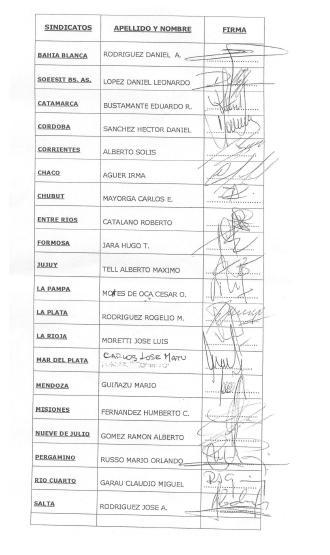 SINDICATOS APELLIDO Y NOMBRE FIRMA
BAHIA BLANCA RODRIGUEZ DANIEL A.
SOEESIT BS. AS. LOPEZ DANIEL LEONARDO
CATAMARCA BUSTAMANTE EDUARDO R.
CORDOBA SANCHEZ HECTOR DANIEL
CORRIENTES ALBERTO SOLIS
CHACO AGUER IRMA
CHUBUT MAYORGA CARLOS E.
ENTRE RIOS CATALANO ROBERTO
FORMOSA JARA HUGO T.
JUJUY TELL ALBERTO MAXIMO
LA PAMPA MONTES DE OCA CESAR O.
LA PLATA RODRIGUEZ ROGELIO M.
LA RIOJA MORETTI JOSE LUIS
MAR DEL PLATA CARLOS JOSE MATU
MENDOZA GUIÑAZU MARIO
MISIONES FERNANDEZ HUMBERTO C.
NUEVE DE JULIO GOMEZ RAMON ALBERTO
PERGAMINO RUSSO MARIO ORLANDO
RIO CUARTO GARAU CLAUDIO MIGUEL
SALTA RODRIGUEZ JOSE A.